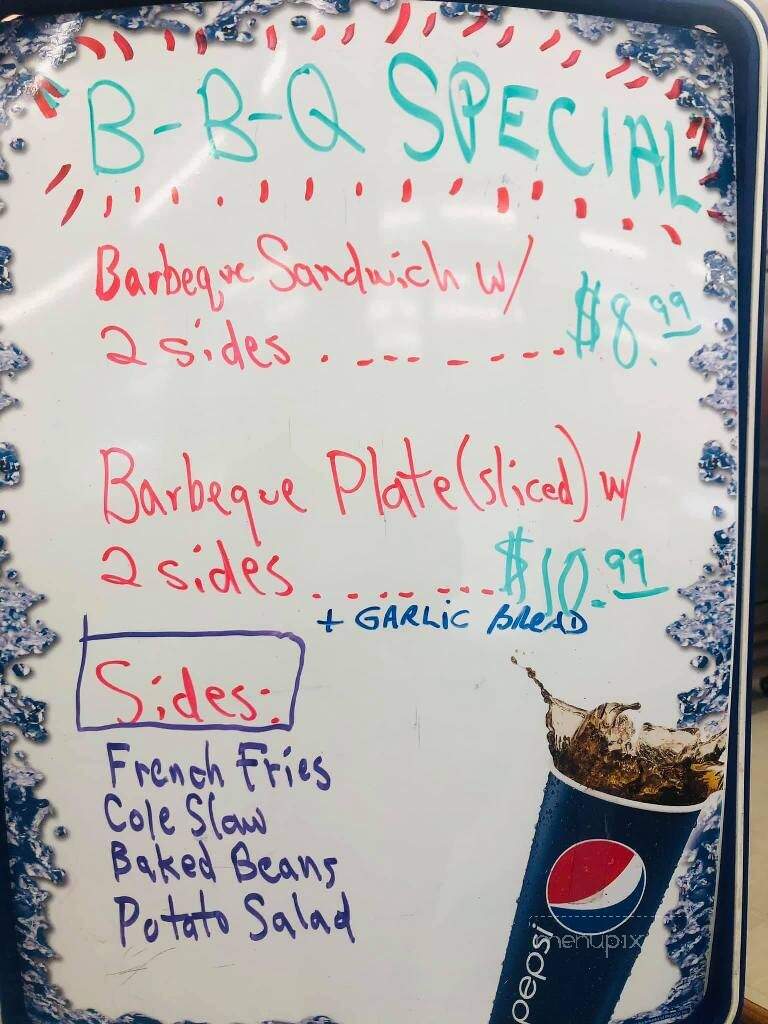 B-B-Q SPECIAL
Barbeque Sandwich w/
2 sides . - - - - - - - - $8.99
Barbeque Plate (sliced) w/
2 sides . - - - - - - - $10.99
+ GARLIC BREAD
Sides:
French Fries
Cole Slaw
Baked Beans
Potato Salad
pepsi
menupix